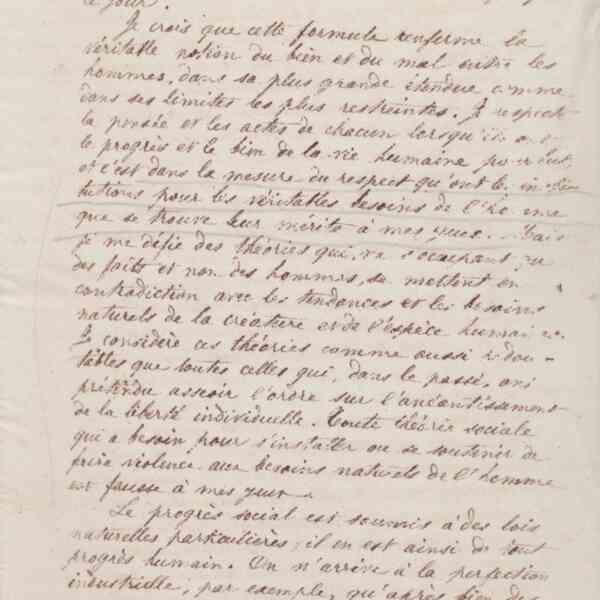 ce jour.
Je crois que cette formule renferme la
véritable notion du bien et du mal entre les
hommes, dans sa plus grande étendue comme
dans ses limites les plus restreintes. Je respecte
la pensée et les actes de chacun lorsqu'ils ont
le progrès et le bien de la vie humaine pour but,
et c'est dans la mesure du respect qu'ont les insti
tutions pour les véritables besoins de l'homme
que se trouve leur mérite à mes yeux. Mais
je me défie des théories qui, ne s'occupant que
des faits et non des hommes, se mettent en
contradiction avec les tendances et les besoins
naturels de la créature et de l'espèce humaine.
Je considère ces théories comme aussi redou-
tables que toutes celles qui, dans le passé, ont
prétendu asseoir l'ordre sur l'anéantissement
de la liberté individuelle. Toute théorie sociale
qui a besoin pour s'installer ou se soutenir de
faire violence aux besoins naturels de l'homme
est fausse à mes yeux.
Le progrès social est soumis à des lois
naturelles particulières; il en est ainsi de tout
progrès humain. On n'arrive à la perfection
industrielle, par exemple, qu'après bien des